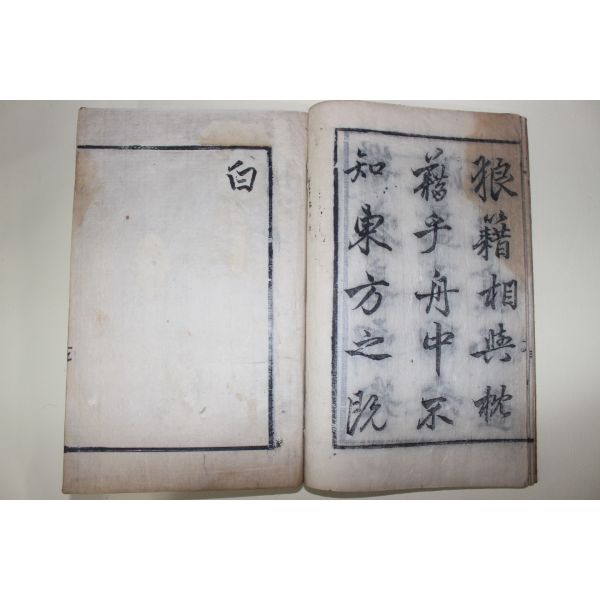 狼籍相與枕
藉乎舟中不
知東方之既
白